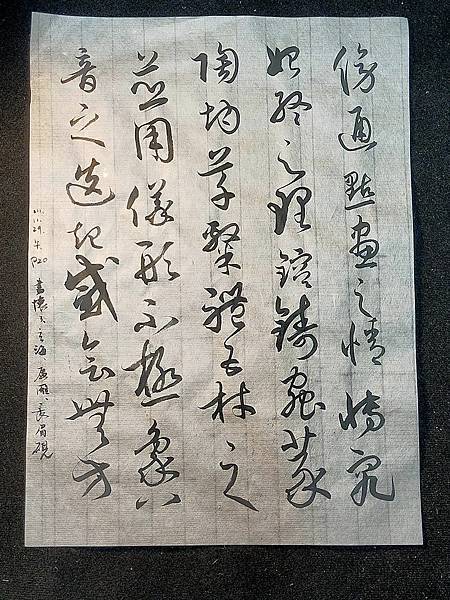 傍通點畫之情博究
始終之理鎔鑄蟲篆
陶均草隸體五材之
並用儀形不極象八
音之迭起感會無方
111.11.29. P20 長眉硯